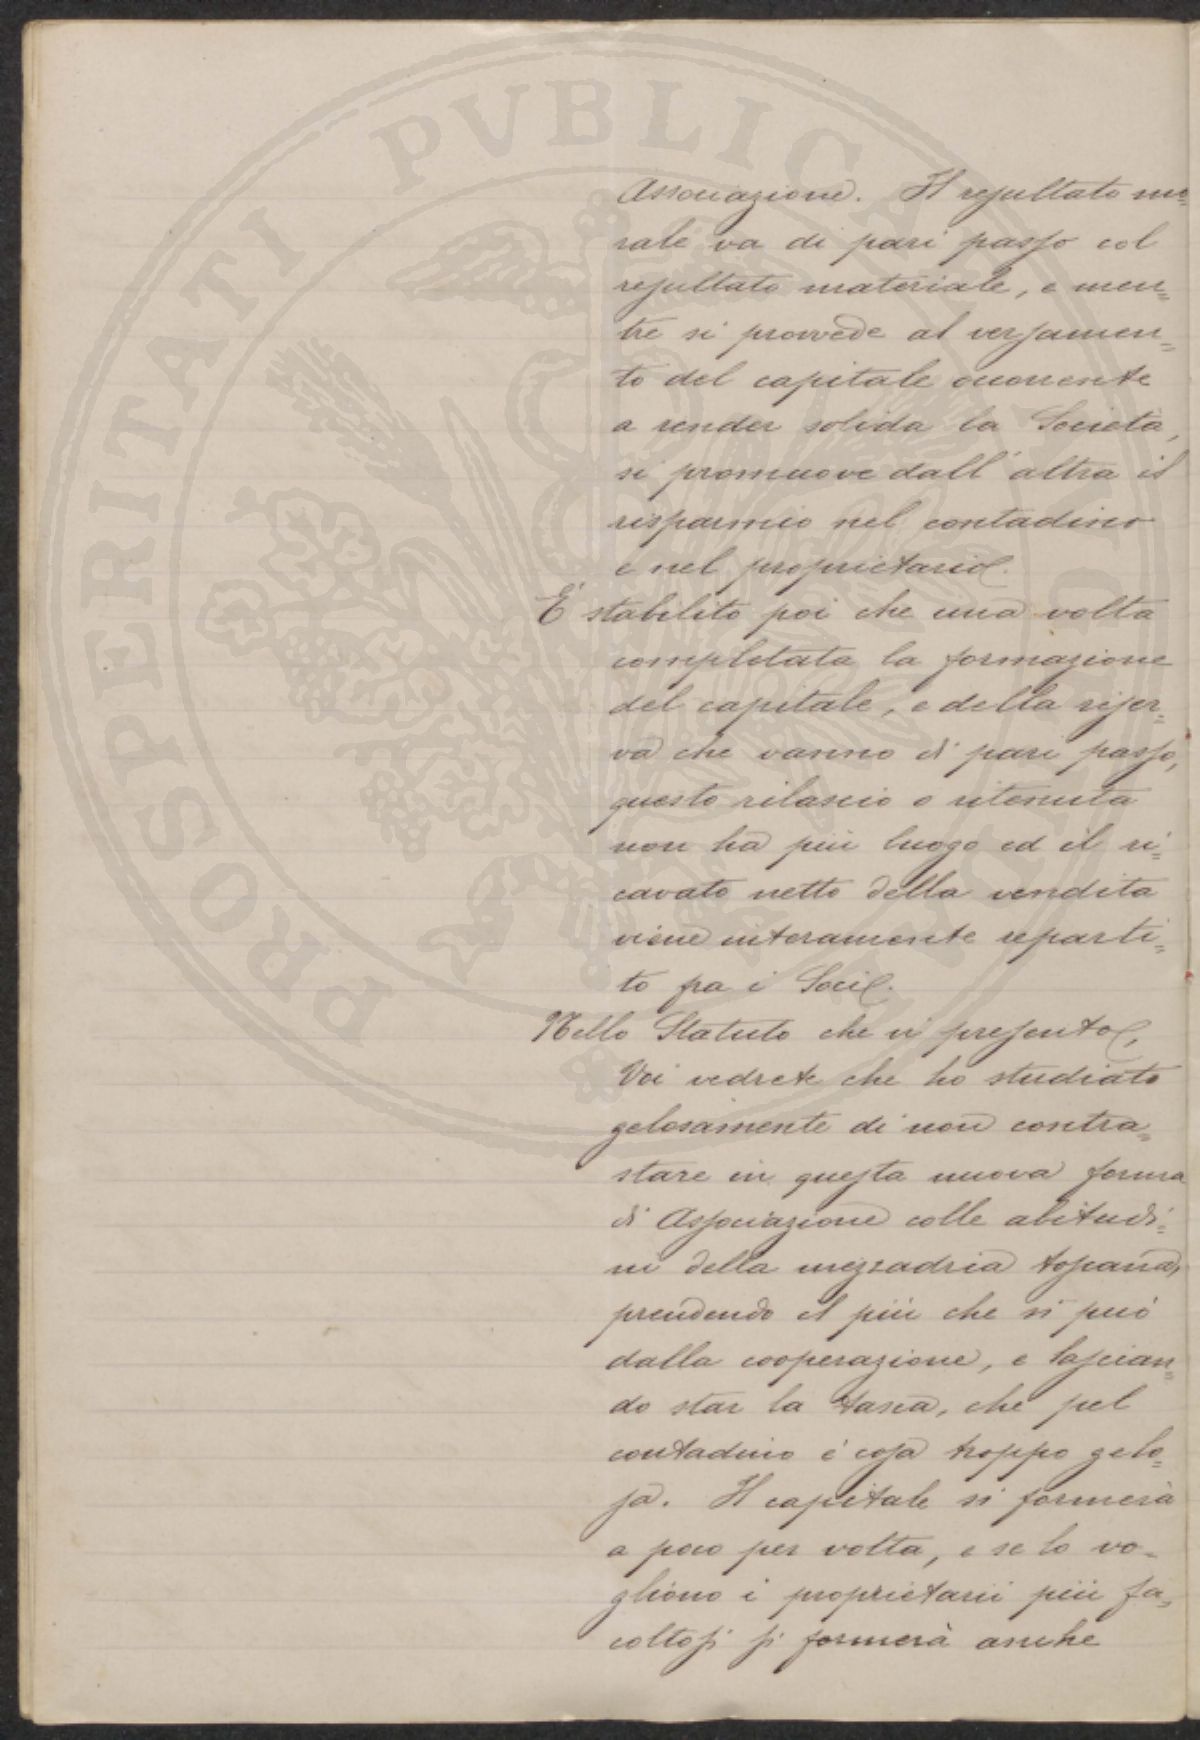 Associazione. Il resultato mo=
rale va di pari passo col
resultato materiale, e men=
tre si provvede al versamen=
to del capitale occorrente
a render solida la Società,
si promuove dall'altra il
risparmio nel contadino
e nel proprietario.
È stabilito poi che una volta
completata la formazione
del capitale, e della riser=
va che vanno di pari passo,
questo rilascio o ritenuta
non ha più luogo ed il ri=
cavato netto della vendita
viene interamente reparti=
to fra i Socii.
Nello Statuto che vi presento,
Voi vedrete che ho studiato
gelosamente di non contra=
stare in questa nuova forma
di Associazione colle abitudi=
ni della mezzadria toscana,
prendendo il più che si può
dalla cooperazione, e lascian=
do star la tasca, che pel
contadino è cosa troppo gelo=
sa. Il capitale si formerà
a poco per volta, e se lo vo=
gliono i proprietarii più fa=
coltosi si formerà anche
PROSPERITATI PVBLICAE